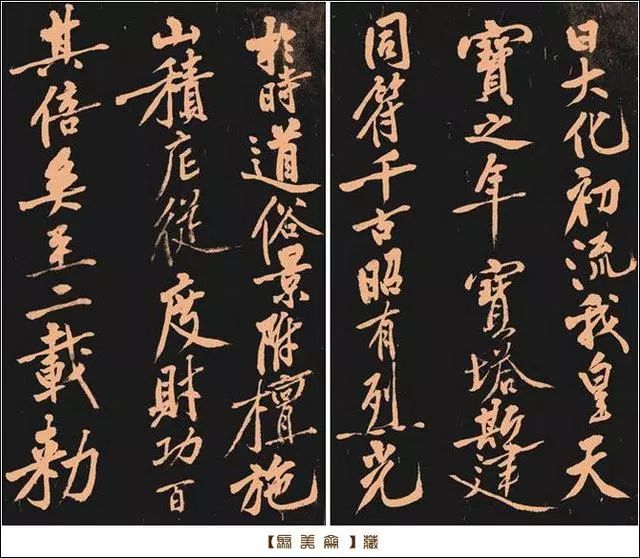 日大化初流我皇天
寶之年寶塔斯建
同符千古昭有烈光
於時道俗景附檀施
山積庀徒度財功百
其倍矣至二載勑
【美】藏